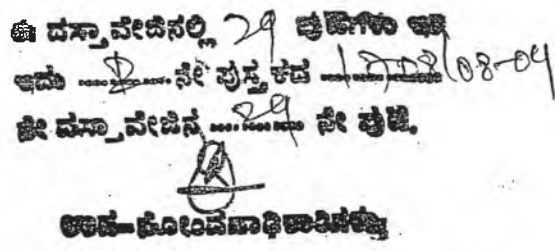 ಈ ದಸ್ತಾವೇಜಿನಲ್ಲಿ 29 ಪುಟಗಳು ಇವೆ
ಇದು ನೇ ಪುಸ್ತಕದ /08-04
ನೇ ದಸ್ತಾವೇಜಿನ 29 ನೇ ಪುಟ.
ಉಪ-ನೋಂದಣಾಧಿಕಾರಿಗಳು